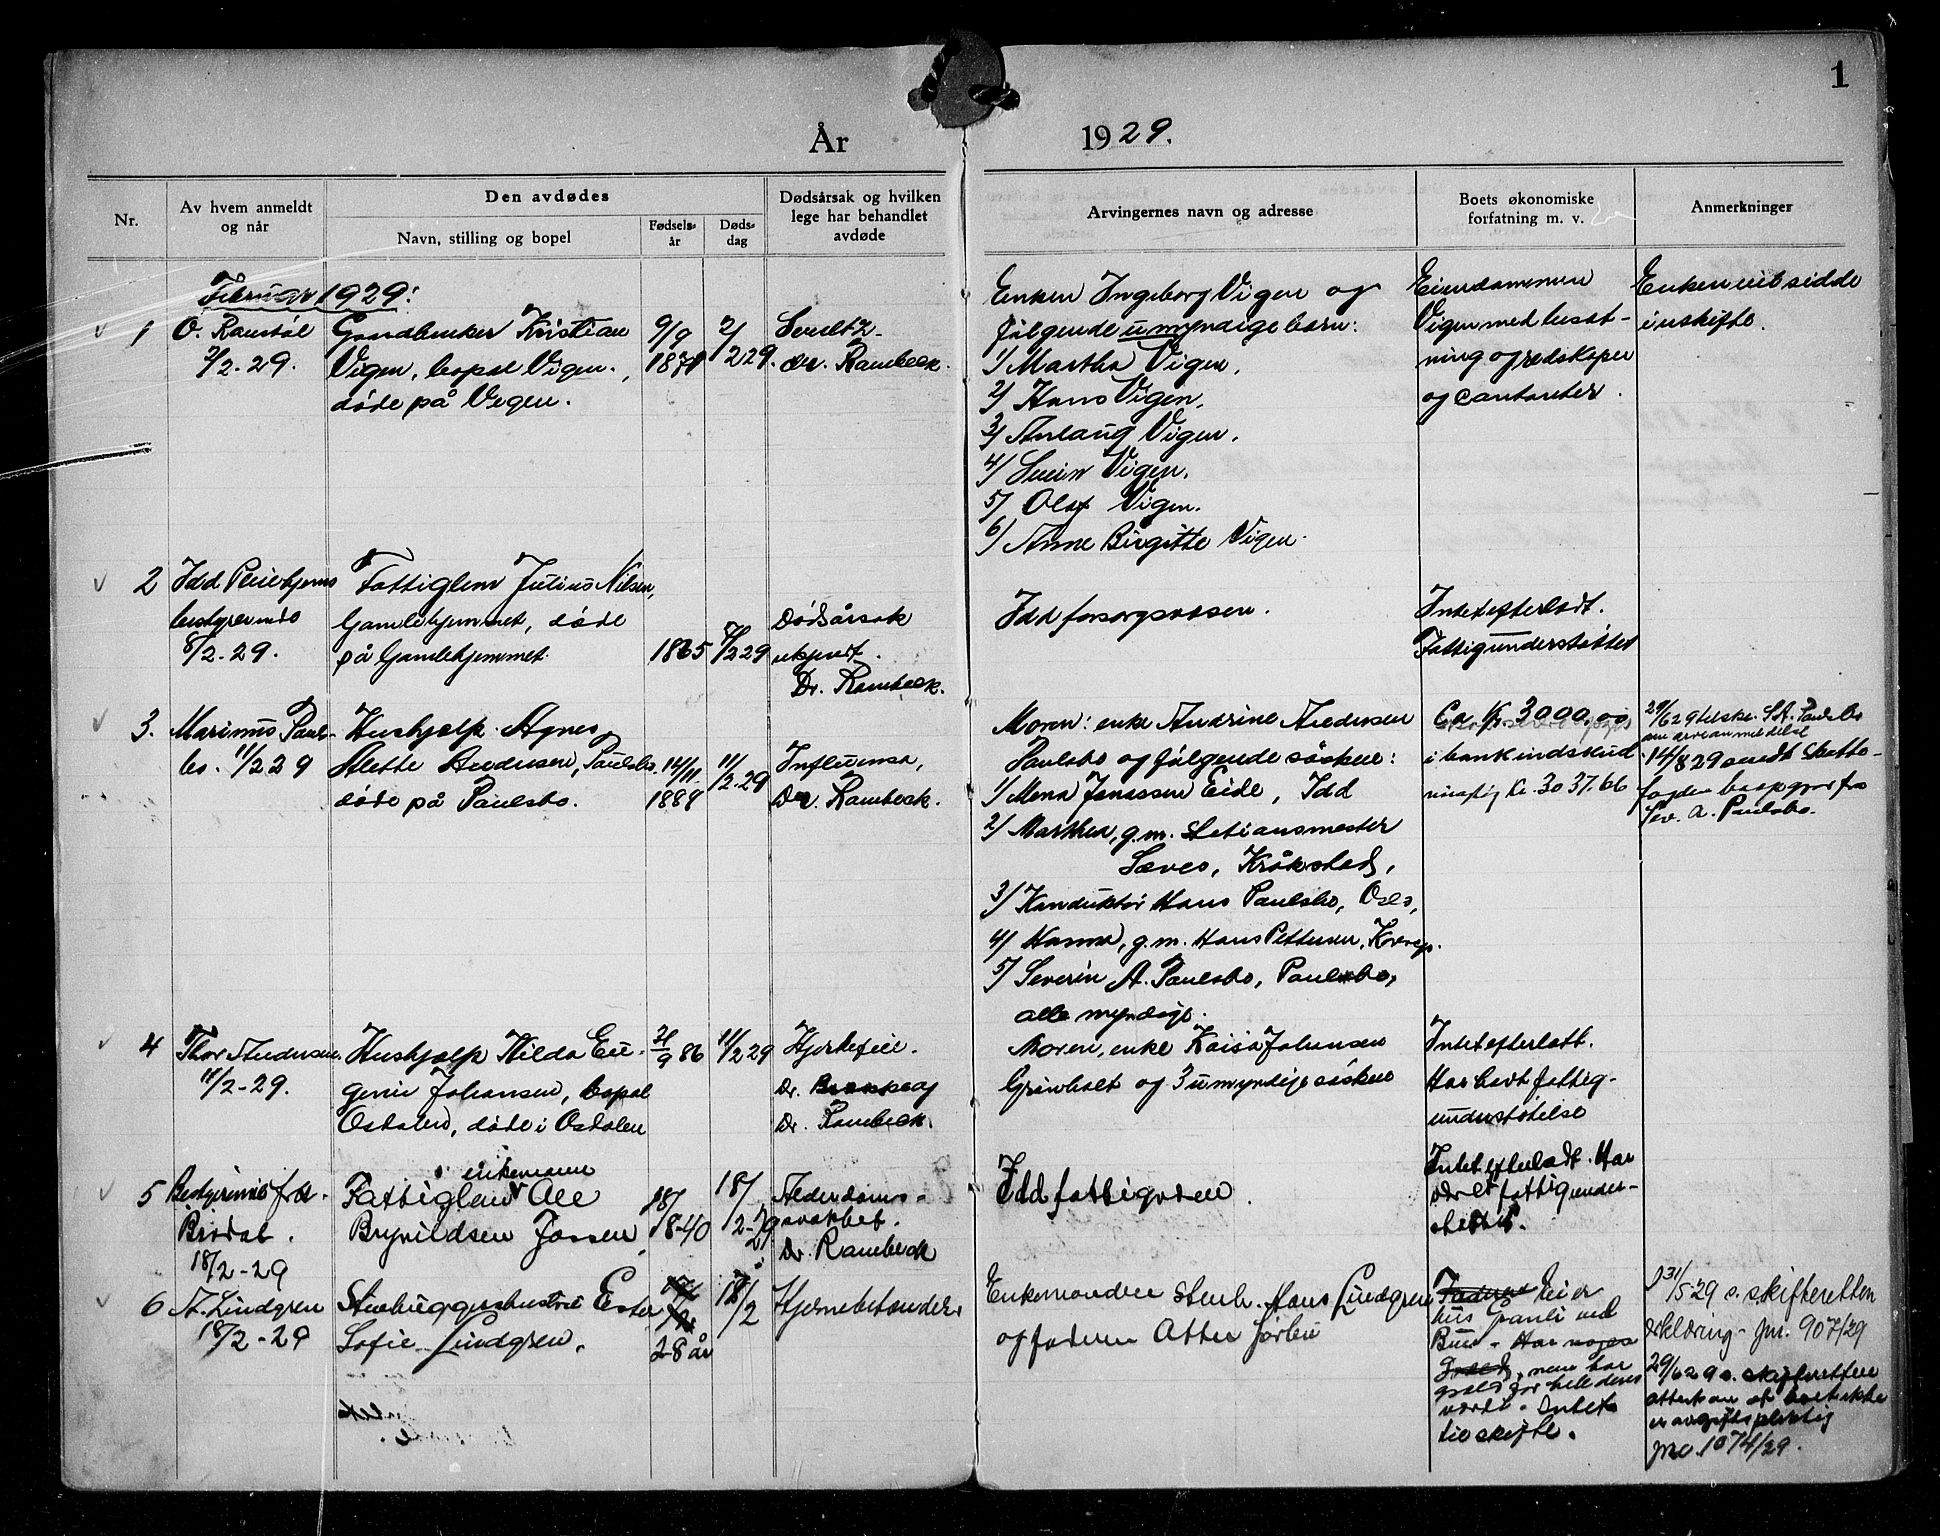 1
År 1929.
Nr.
Av hvem anmeldt
og når
Den avdødes
Navn, stilling og bopel
Fødsels-
år
Døds-
dag
Dødsårsak og hvilken
lege har behandlet
avdøde
Arvingernes navn og adresse
Boets økonomiske
forfatning m. v.
Anmerkninger
Februar 1929:
1
O. Ramstøl
2/2-29.
Gaardbruker Kristian
Vigen, bopel Vigen.
døde på Vigen.
9/9
1871
2/
2 29.
dr. Rambeck.
Enken Ingeborg Vigen og
følgende umyndige barn:
1/ Martha Vigen,
2/ Hans Vigen,
3/ Aslaug Vigen,
4/ Svein Vigen,
5/ Olaf Vigen.
6/ Anne Birgitte Vigen.
Eiendommen
Vigen med besæt-
ning og redskaper
og contanter.
Enken i uitsidde
i uskifte.
2
Idd Pleiehjems
bestyrerinde
8/2-29.
Fattiglem Julius Nilsen,
Gamlehjemmet, døde
på Gamlehjemmet.
1865
7/2 29
Dødsårsak
ukjent.
Dr. Rambeck.
Idd forsorgsvæsen.
Intet efterladt.
Fattigunderstøttet
3.
Marinus Pauls-
bo. 11/2 29
Hushjælp Agnes
Alette Andersen, Paulsbo.
døde på Paulsbo.
14/11-
1889
11/
2-29
Influensa,
Dr. Rambeck.
Moren: enke Andrine Andersen
Paulsbo og følgende søsken:
1/ Mena Jonassen Eide, Idd
2/ Marthea, g.m. stationsmester
Sæves, Kråkstad,
3/ Konduktør Hans Paulsbo, Oslo,
4/ Hanna, g.m. Hans Pettersen, Kornsjø.
5/ Severin A. Paulsbo, Paulsbo,
alle myndige.
Ca. kr. 3000,00
i bankindskud
kr. 3037.66
29/6 29 tilskr. S.A. Paulsbo
om arveanmeldelse
14/8 29 sendt skatte-
fogden boopgjør fra
Sev. A. Paulsbo.
4
Thor Andersen
11/2-29.
Hushjælp Hilda Eu-
genie Johansen, bopæl
Osdalen, døde i Osdalen
21/9 86
11/2 29
Hjertefeil.
Dr.
Dr. Rambeck.
Moren, enke Kaisa Johansen
Grinholt og 3 umyndige søsken
Intet efterlatt.
Har havt fattig-
understøtelse
5
Bestyrerinde frk.
Brødal.
18/2-29
enkemann
Fattiglem Ole
Brynildsen Jossen
18/
1840
18/
2-29
Alderdoms-
svakhet.
Dr. Rambeck
Idd fattigvæsen.
Intet efterladt. Har
været fattigunder-
støttet.
6
A. Lindgren
18/2-29
Stenhuggerhustru Ester
Sofie Lindgren.
28 år
18/2
Hjernebetændelse
Enkemanden Stenh. Hans Lindgren
og faderen Otter Jørlie
eier
hus Granli ved
Buer. Har noget
Gjæld, men har
gjæld for hele deres
værdi. Intet
til skifte.
31/5 29 s. skifteretten
erklæring jnr. 907/29
29/6 29 s. skifteretten
attest om at boet ikke
er avgiftspliktig
jnr. 1074/29.